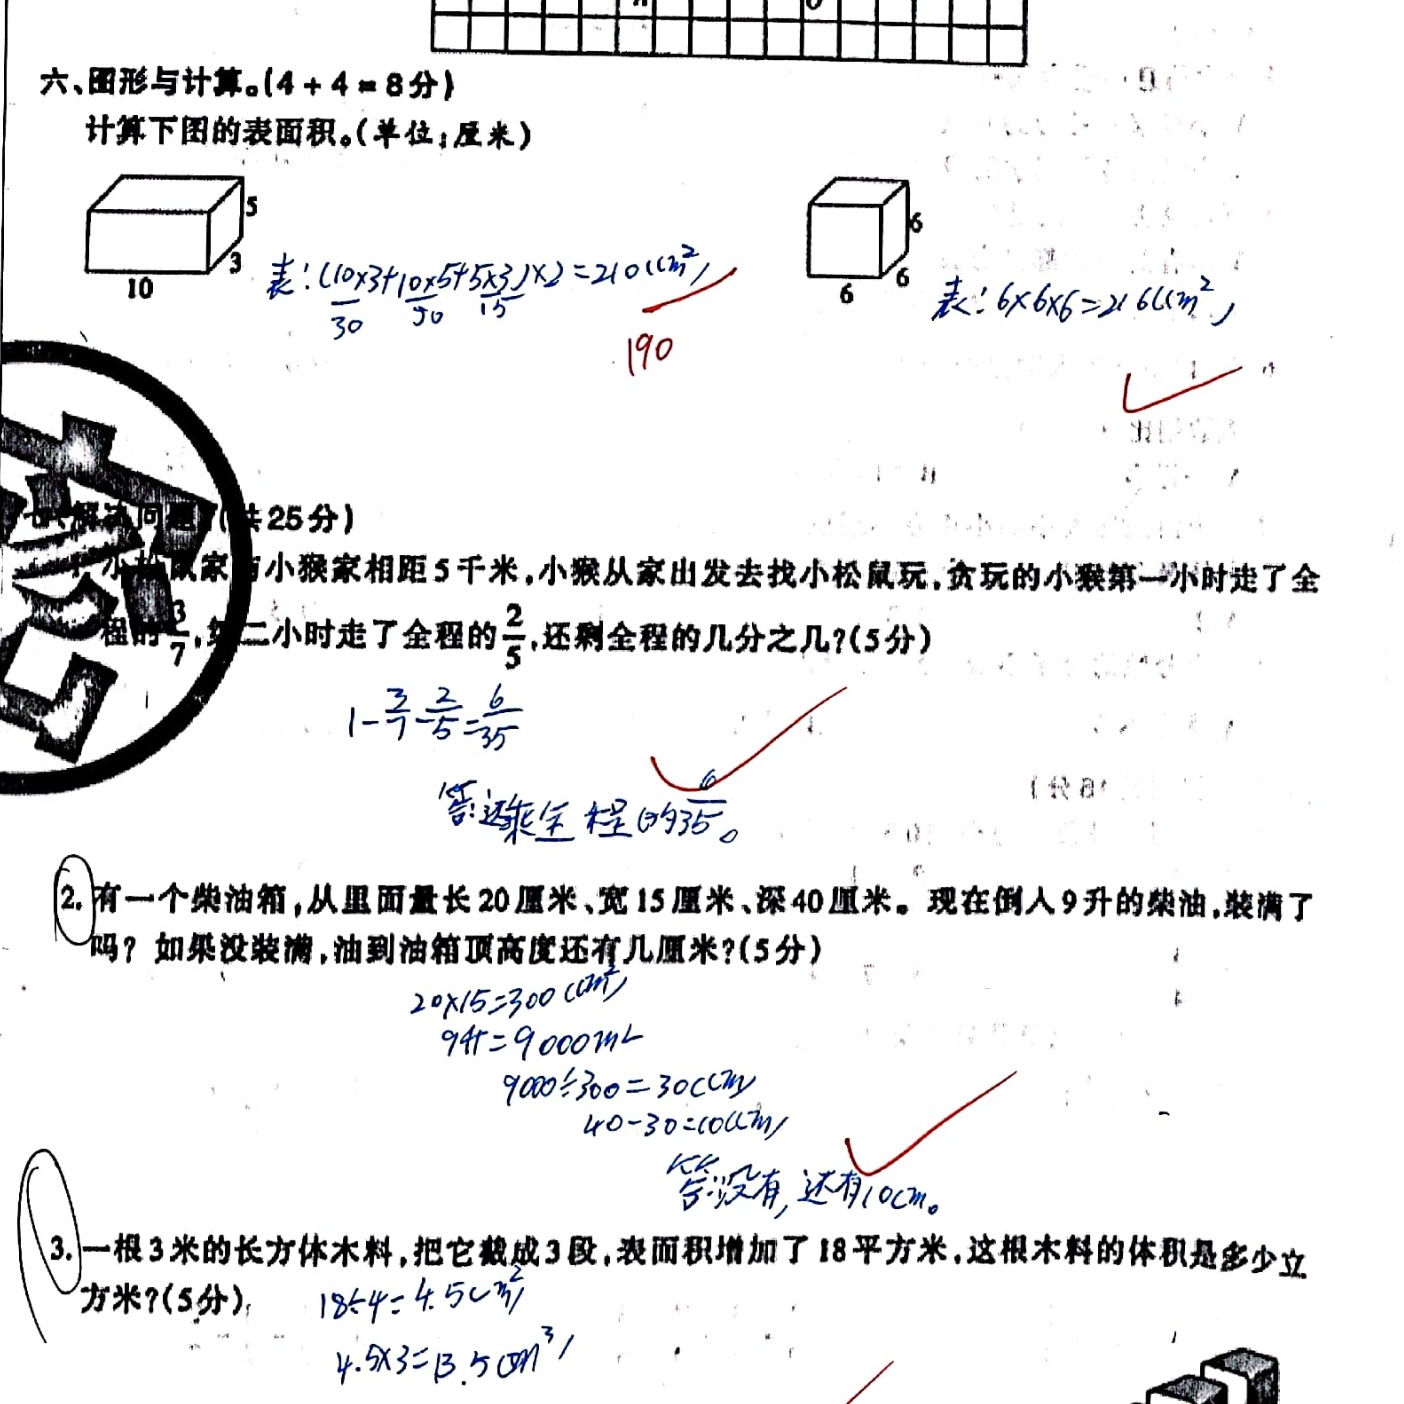 六、图形与计算。(4+4=8分)
计算下图的表面积。(单位:厘米)
5
3
10
表:(10×3+10×5+5×3)×2=210(cm²)
30 50 15
190
6
6
6
表:6×6×6=216(cm²)
解决问题(共25分)
家与小猴家相距5千米,小猴从家出发去找小松鼠玩,贪玩的小猴第一小时走了全
程的3/7,第二小时走了全程的2/5,还剩全程的几分之几?(5分)
1-3/7-2/5=6/35
答:还剩全程的6/35。
2. 有一个柴油箱,从里面量长20厘米、宽15厘米、深40厘米。现在倒入9升的柴油,装满了
吗?如果没装满,油到油箱顶高度还有几厘米?(5分)
20×15=300(cm²)
9升=9000mL
9000÷300=30(cm)
40-30=10(cm)
答:没有,还有10cm。
3. 一根3米的长方体木料,把它截成3段,表面积增加了18平方米,这根木料的体积是多少立
方米?(5分)
18÷4=4.5(m²)
4.5×3=13.5(m³)